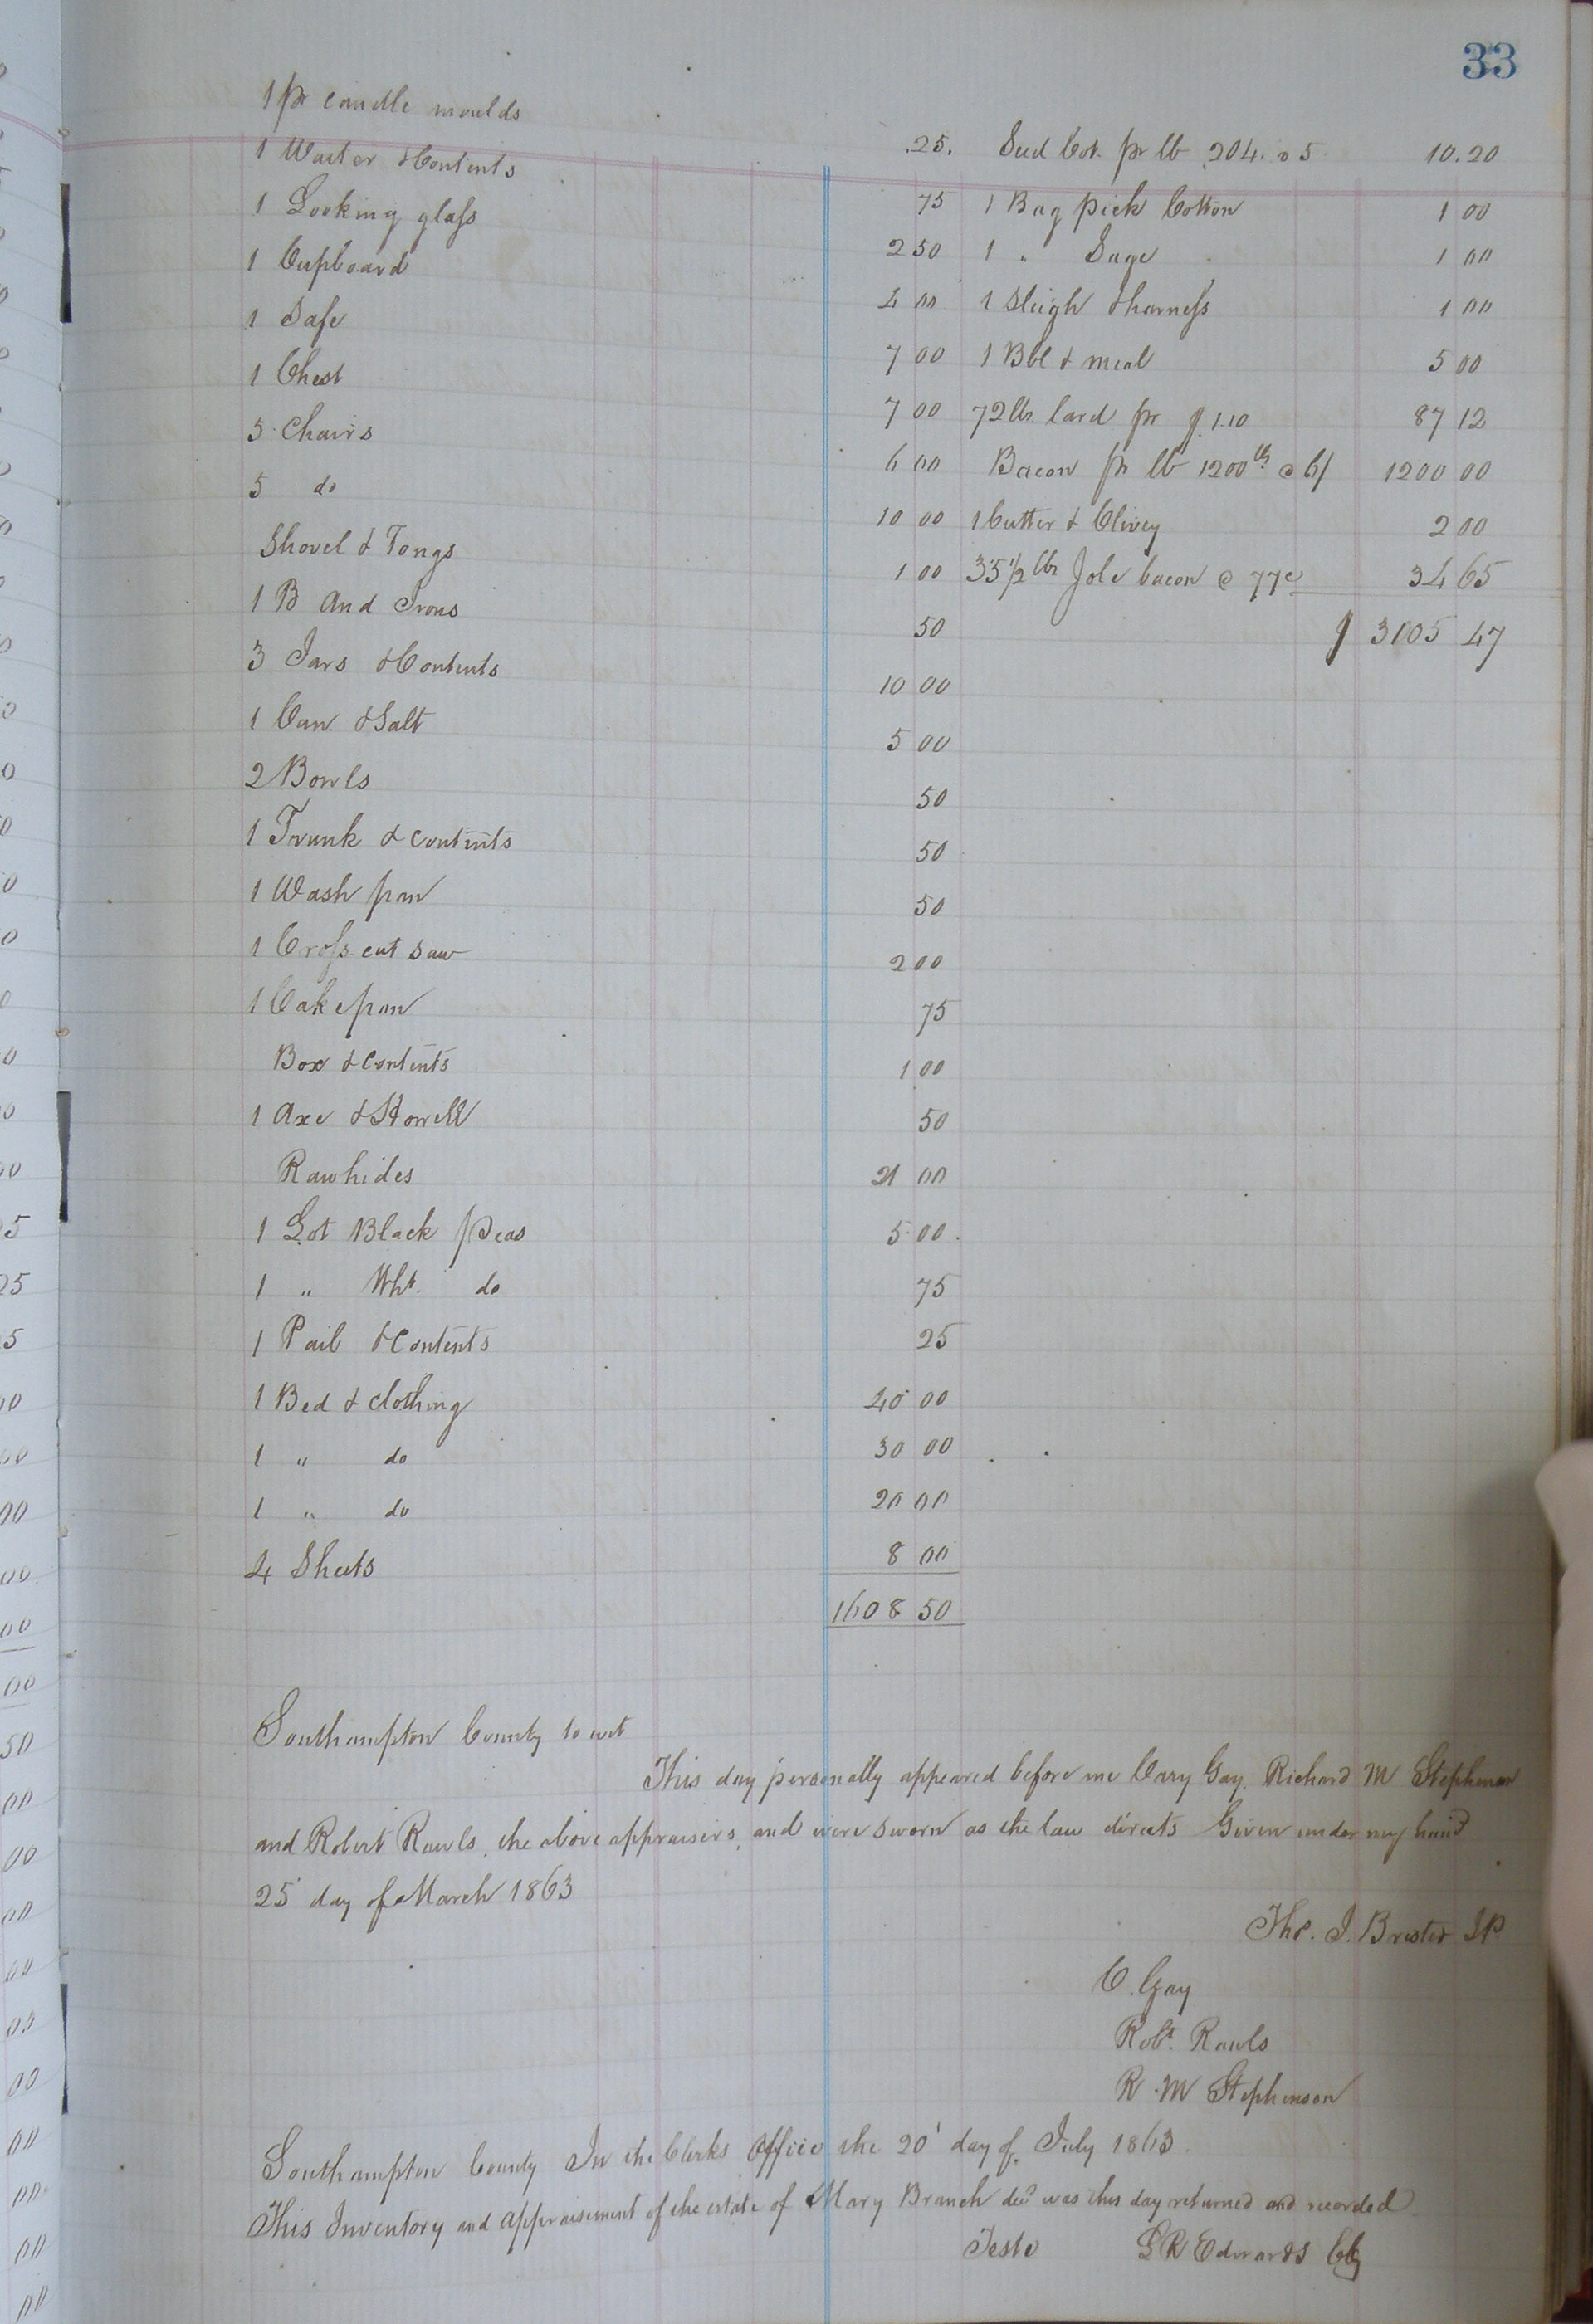 33
1 pr candle moulds .25.
1 Waiter & Contents 75
1 Looking glass 2 50
1 Cupboard 4 00
1 Safe 7 00
1 Chest 7 00
5 Chairs 6 00
5 do 10 00
Shovel & Tongs 1 00
1 B And Irons 50
3 Jars & Contents 10 00
1 Can & Salt 5 00
2 Bowls 50
1 Trunk & Contents 50
1 Wash pan 50
1 Cross cut saw 2 00
1 Cake pan 75
Box & Contents 1 00
1 Axe & Howell 50
Rawhides 21 00
1 Lot Black Peas 5 00.
1 " Wht. do 75
1 Pail & Contents 25
1 Bed & clothing 40 00
1 " do 30 00
1 " do 20 00
4 Sheets 8 00
1608 50
Seed Cot. pr lb 204. @ 5 10.20
1 Bag pick Cotton 1 00
1 " Sage 1 00
1 Sleigh & harness 1 00
1 Bbl & meal 5 00
72 lbs. lard pr $ 1.10 87 12
Bacon pr lb 1200 lb @ 6/ 1200 00
1 Cutter & Clivey 2 00
35 1/2 lbs Jole bacon @ 77c 34 65
$ 3105 47
Southampton County to wit
This day personally appeared before me Cary Gay, Richard M Stephenson
and Robert Rawls, the above appraisers, and were sworn as the law directs Given under my hand
25 day of March 1863
Tho. J. Brister JP
C. Gay
Robt. Rawls
R. M Stephenson
Southampton County In the Clerks Office the 20' day of July 1863.
This Inventory and appraisement of the estate of Mary Branch decd was this day returned and recorded
Teste L R Edwards